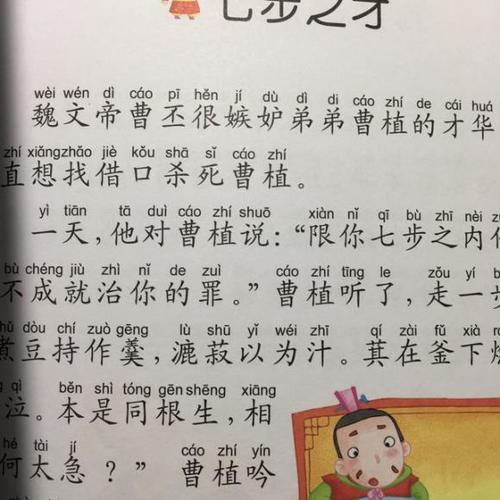 七步之才
wèi wén dì cáo pī hěn jí dù dì di cáo zhí de cái huá
魏文帝曹丕很嫉妒弟弟曹植的才华
zhí xiǎngzhǎo jiè kǒu shā sǐ cáo zhí
直想找借口杀死曹植。
yì tiān tā duì cáo zhí shuō xiàn nǐ qī bù zhī nèi
一天，他对曹植说：“限你七步之内
bù chéng jiù zhì nǐ de zuì cáo zhí tīng le zǒu yí
不成就治你的罪。”曹植听了，走一步
dòu chí zuò gēng lù shū yǐ wéi zhī qí zài fǔ xià
煮豆持作羹，漉菽以为汁。萁在釜下
qì běn shì tóng gēn shēng xiāng
泣。本是同根生，相
hé tài jí cáo zhí yín
何太急？” 曹植吟